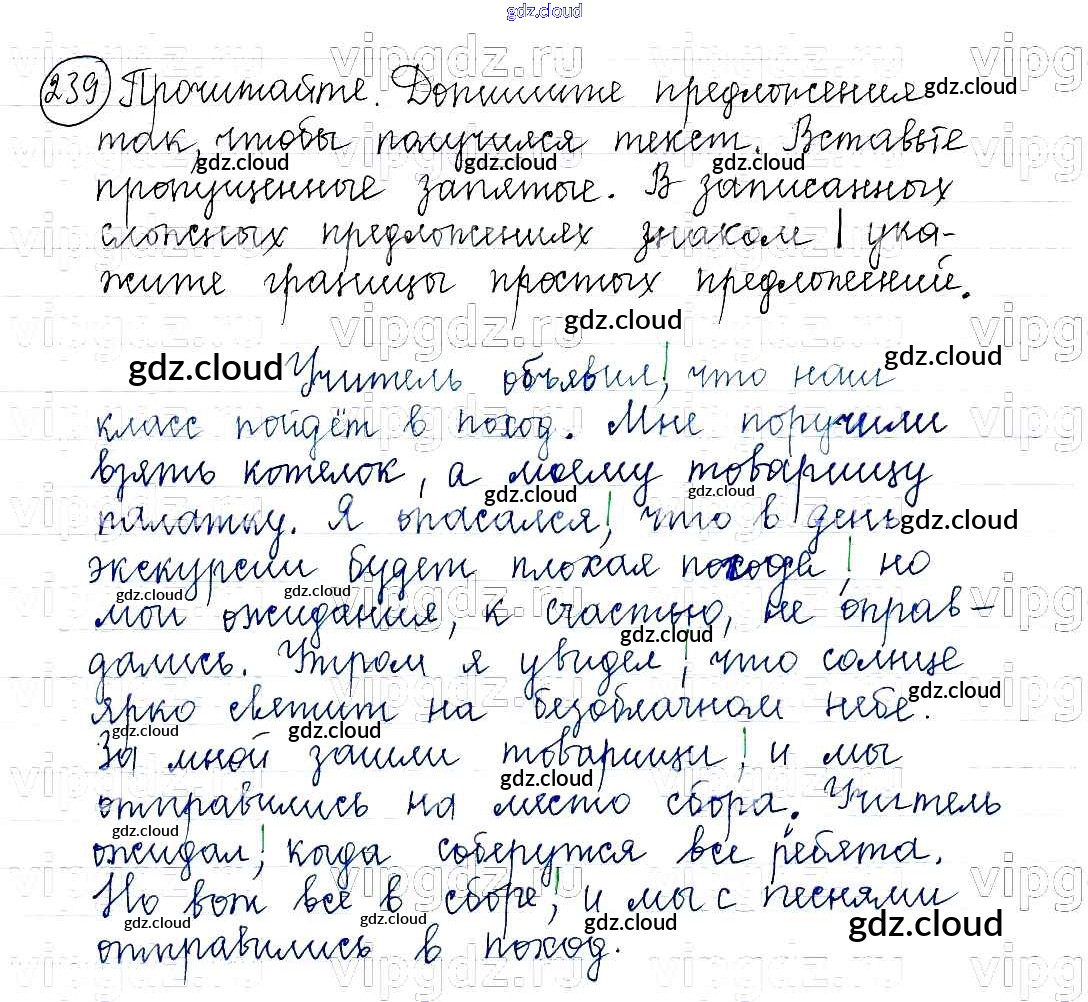 gdz.cloud
239 Прочитайте. Допишите предложения
так, чтобы получился текст. Вставьте
пропущенные запятые. В записанных
сложных предложениях знаком | ука-
жите границы простых предложений.
Учитель объявил,| что наш
класс пойдёт в поход. Мне поручили
взять котелок, а моему товарищу
палатку. Я опасался,| что в день
экскурсии будет плохая погода,| но
мои ожидания, к счастью, не оправ-
дались. Утром я увидел,| что солнце
ярко светит на безоблачном небе.
За мной зашли товарищи,| и мы
отправились на место сбора. Учитель
ожидал,| когда соберутся все ребята.
Но вот все в сборе,| и мы с песнями
отправились в поход.